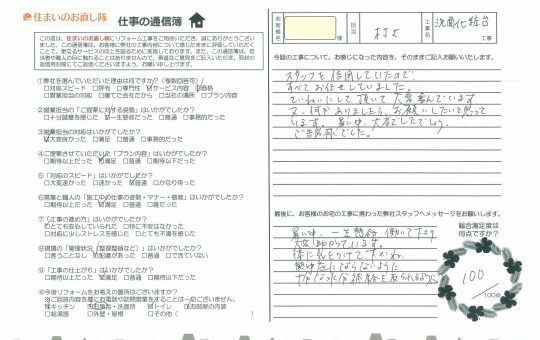 住まいのお直し隊 仕事の通信簿
この度は、住まいのお直し隊にリフォーム工事をご用命いただき、誠にありがとうございました。
①弊社を選んでいただいた理由は何ですか?(複数回答可)
□対応スピード □評判 □専門性 ☑サービス内容 ☑価格
□営業担当の対応 □建てた会社だから □当社の場所 □プラン内容
②営業担当の「ご提案に対する姿勢」はいかがでしたか?
□十分誠意を感じた ☑一生懸命だった □普通 □事務的だった
③営業担当の対応はいかがでしたか?
☑大変良かった □満足 □普通 □事務的だった
④ご提案させていただいた「プラン内容」はいかがでしたか?
□期待以上だった ☑満足 □普通 □期待以下だった
⑤「対応のスピード」はいかがでしたか?
□大変速かった □速かった ☑普通 □かなり待った
⑥営業と職人の「施工中の仕事の姿勢・マナー・態度」はいかがでしたか?
□期待以上だった ☑満足 □普通 □期待以下だった
⑦「工事の進め方」はいかがでしたか?
□とても安心していられた □特に不安はなかった
□対応に少しストレスを感じた □とても不満を感じた
⑧現場の「管理状況(整理整頓など)」はいかがでしたか?
□言うことなし ☑配慮があった □普通 □できていない
⑨「工事の仕上がり」はいかがでしたか?
□期待以上だった ☑満足 □普通 □期待以下だった
⑩今後リフォームをお考えの箇所はございますか?
※ご回答内容を基にお電話や訪問営業をすることは一切ございません。
☑キッチン ☑お風呂・洗面所 ☑トイレ □お部屋の内装
□給湯器 □外壁・屋根 □その他( )
お客様名 様
担当
工事名 洗面化粧台 工事
今回の工事で、お感じになった内容を、そのままご記入お願いいたします。
スタッフを信用していたので
すべてお任せしていました。
ていねいにして頂いて大変喜んでいます
又、何かありましたら、お願いしたいと思って
います。 暑い中、大変でしたでしょう。
ご苦労様でした。
最後に、お客様のお宅の工事に携わった弊社スタッフへメッセージをお願いします。
暑い中、一生懸命 働いて下さり
大変助かっています。
体に気をつけて下さいね。
熱中症にならないように
十分な水分補給を
総合満足度は
何点ですか?
100
/100点